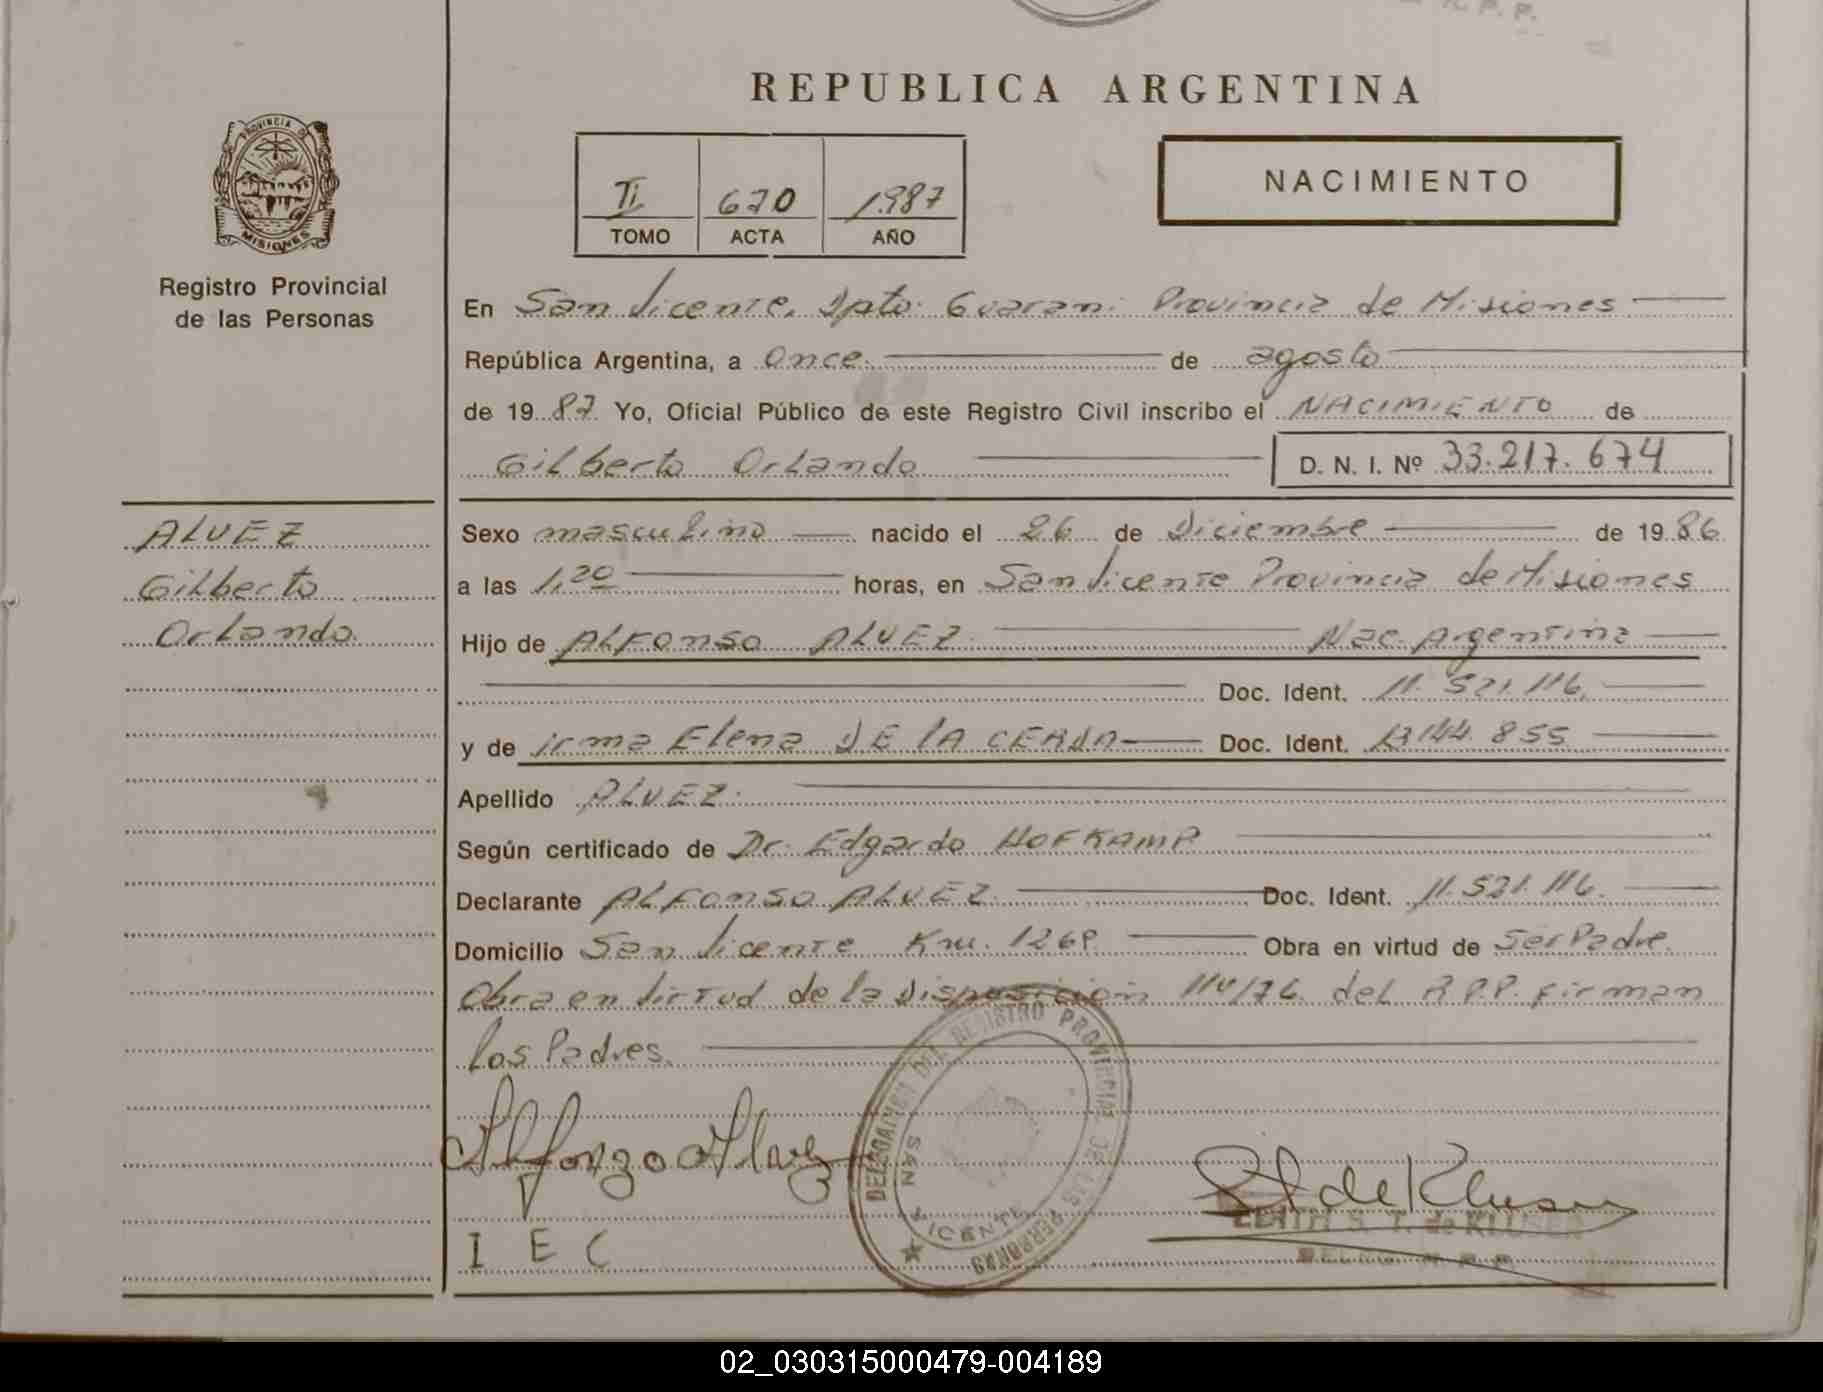 R. P. P.
REPUBLICA ARGENTINA
PROVINCIA DE
MISIONES
Registro Provincial
de las Personas
II 670 1987
TOMO ACTA AÑO
NACIMIENTO
En San Vicente, Dpto. Guarani Provincia de Misiones
República Argentina, a once de agosto
de 1987 Yo, Oficial Público de este Registro Civil inscribo el NACIMIENTO de
Gilberto Orlando D. N. I. Nº 33.217.674
ALVEZ
Gilberto
Orlando
Sexo masculino nacido el 26 de Diciembre de 1986
a las 1,20 horas, en San Vicente Provincia de Misiones
Hijo de ALFONSO ALVEZ Nac. Argentina
Doc. Ident. 11.521.116
y de irma Elena DE lA CERDA Doc. Ident. 13.144.855
Apellido ALVEZ
Según certificado de Dr. Edgardo HOFKAMP
Declarante ALFONSO ALVEZ Doc. Ident. 11.521.116
Domicilio San Vicente Km. 1269 Obra en virtud de Ser Padre
Obra en Virtud de la Disposición 114/76 del R.P.P. firman
los Padres.
Alfonzo Alvez
DELEGACION DEL REGISTRO PROVINCIAL DE LAS PERSONAS
SAN VICENTE
de Kluser
EDITH S. T. de KLUSER
I E C
02_030315000479-004189